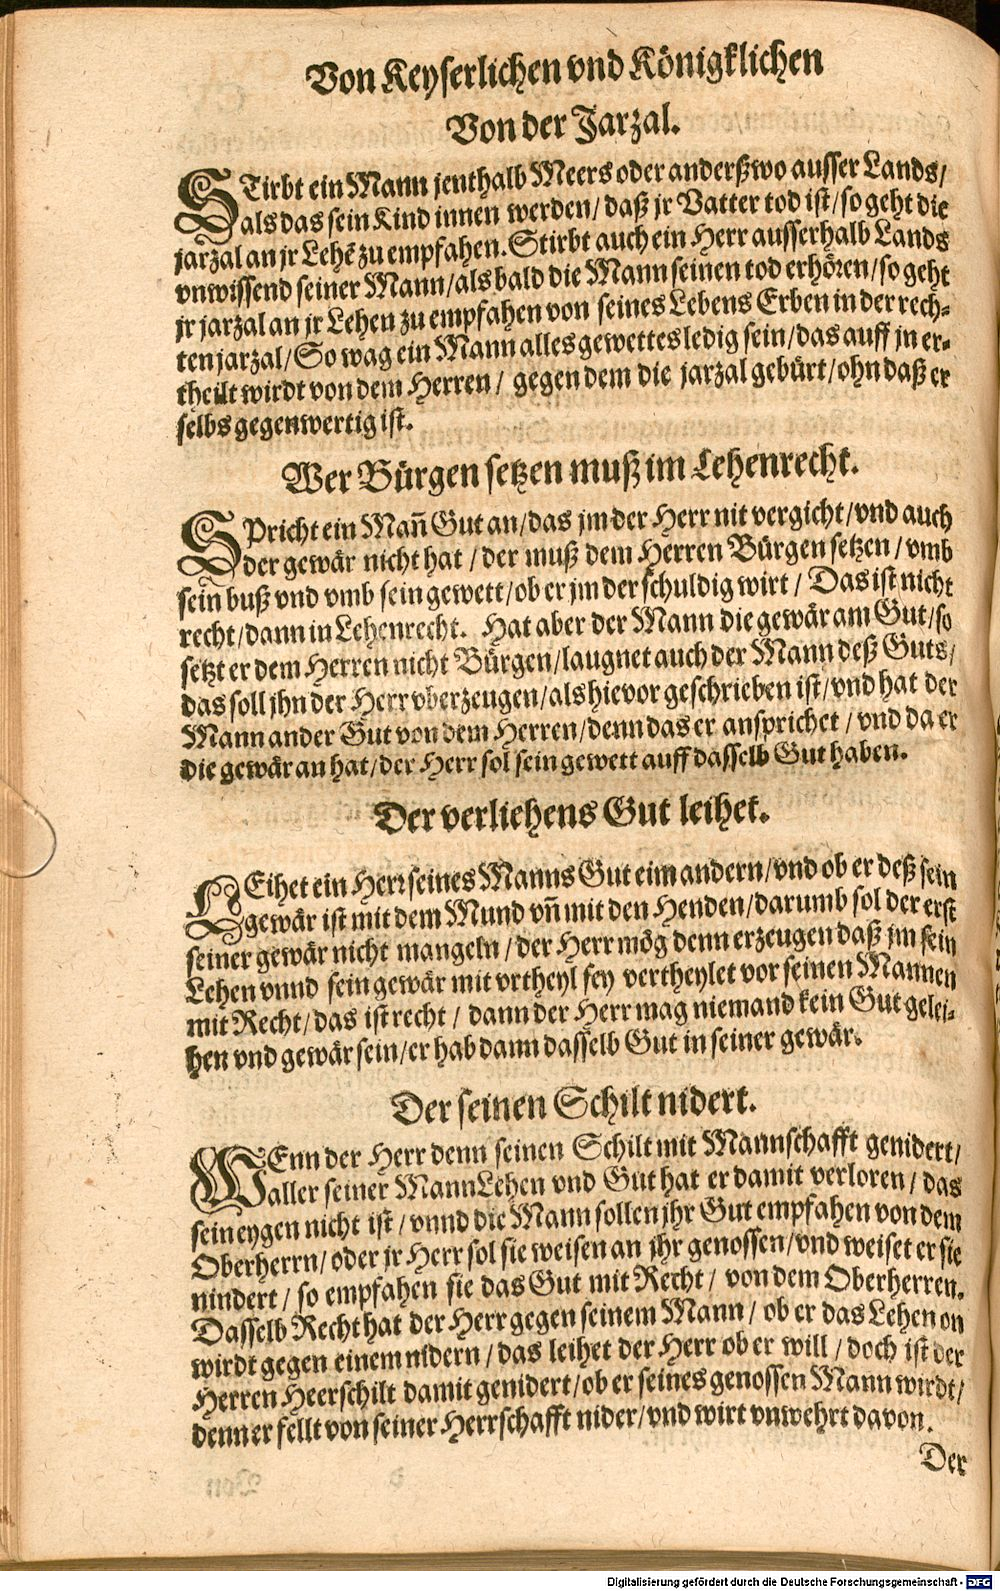 Von Keyserlichen vnd Königklichen
Von der Jarzal.
STirbt ein Mann jenthalb Meers oder anderßwo ausser Lands/
als das sein Kind innen werden/ daß jr Vatter tod ist/ so geht die
jarzal an jr Lehē zu empfahen. Stirbt auch ein Herr ausserhalb Lands
vnwissend seiner Mann/ als bald die Mann seinen tod erhören/ so geht
jr jarzal an jr Lehen zu empfahen von seines Lebens Erben in der rech-
ten jarzal/ So wag ein Mann alles gewettes ledig sein/ das auff jn er-
theilt wirdt von dem Herren/ gegen dem die jarzal gebürt/ ohn daß er
selbs gegenwertig ist.
Wer Bürgen setzen muß im Lehenrecht.
SPricht ein Mañ Gut an/ das jm der Herr nit vergicht/ vnd auch
der gewär nicht hat/ der muß dem Herren Bürgen setzen/ vmb
sein buß vnd vmb sein gewett/ ob er jm der schuldig wirt/ Das ist nicht
recht/ dann in Lehenrecht. Hat aber der Mann die gewär am Gut/ so
setzt er dem Herren nicht Bürgen/ laugnet auch der Mann deß Guts/
das soll jhn der Herr vberzeugen/ als hievor geschrieben ist/ vnd hat der
Mann ander Gut von dem Herren/ denn das er ansprichet/ vnd da er
die gewär an hat/ der Herr sol sein gewett auff dasselb Gut haben.
Der verliehens Gut leihet.
LEihet ein Herr seines Manns Gut eim andern/ vnd ob er deß sein
gewär ist mit dem Mund vñ mit den Henden/ darumb sol der erst
seiner gewär nicht mangeln/ der Herr mög denn erzeugen daß jm sein
Lehen vnnd sein gewär mit vrtheyl sey vertheylet vor seinen Mannen
mit Recht/ das ist recht/ dann der Herr mag niemand kein Gut gelei-
hen vnd gewär sein/ er hab dann dasselb Gut in seiner gewär.
Der seinen Schilt nidert.
WEnn der Herr denn seinen Schilt mit Mannschafft genidert/
aller seiner Mann Lehen vnd Gut hat er damit verloren/ das
sein eygen nicht ist/ vnnd die Mann sollen jhr Gut empfahen von dem
Oberherrn/ oder jr Herr sol sie weisen an jhr genossen/ vnd weiset er sie
nindert/ so empfahen sie das Gut mit Recht/ von dem Oberherren.
Dasselb Recht hat der Herr gegen seinem Mann/ ob er das Lehen on
wirdt gegen einem nidern/ das leihet der Herr ob er will/ doch ist der
Herren Heerschilt damit genidert/ ob er seines genossen Mann wirdt/
denn er fellt von seiner Herrschafft nider/ vnd wirt vnwehrt davon.
Der
Digitalisierung gefördert durch die Deutsche Forschungsgemeinschaft - DFG